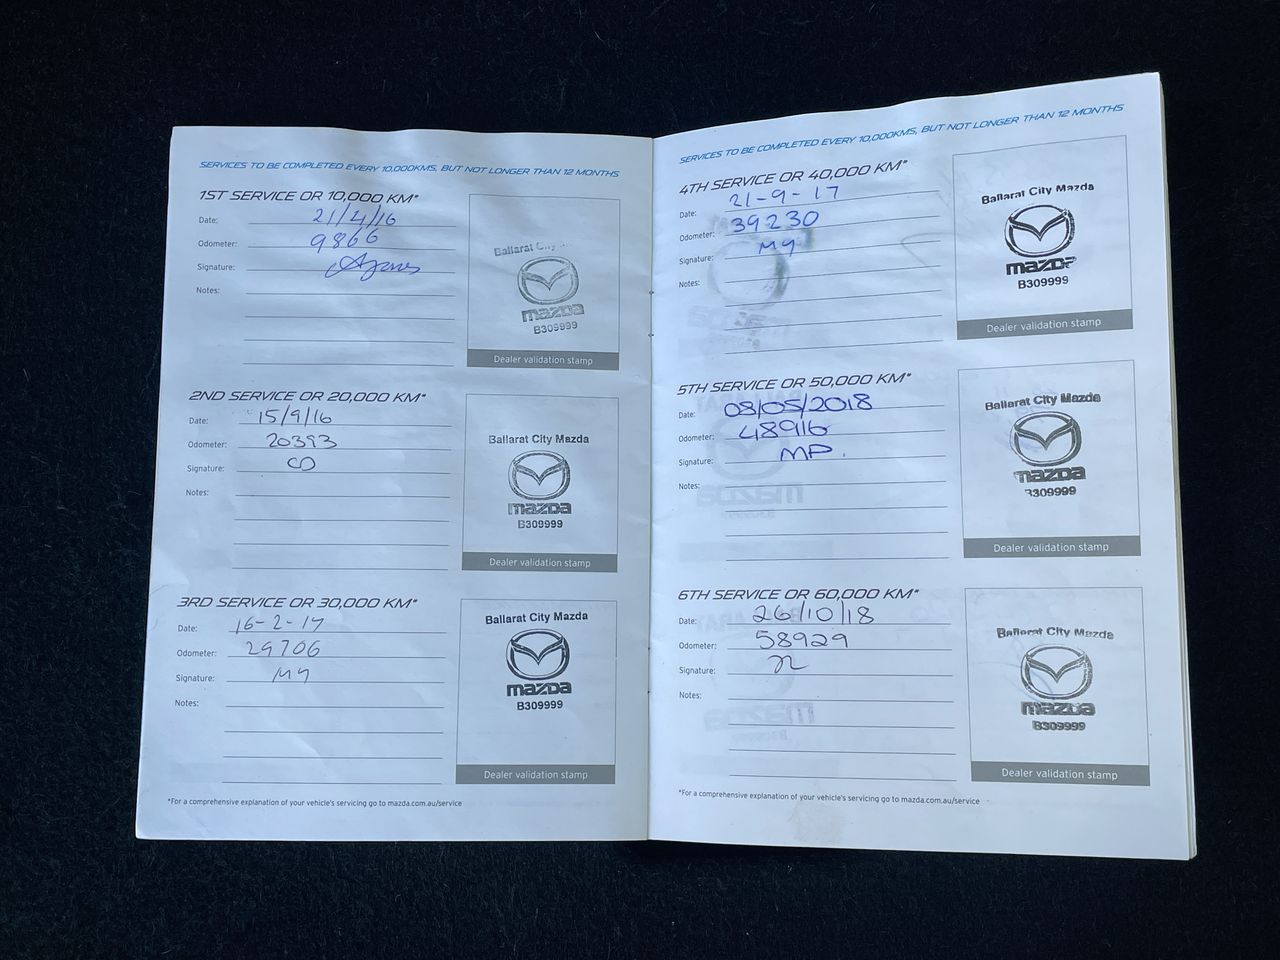 SERVICES TO BE COMPLETED EVERY 10,000KMS, BUT NOT LONGER THAN 12 MONTHS
1ST SERVICE OR 10,000 KM*
Date: 21/4/16
Odometer: 9866
Signature:
Notes:
Ballarat City
mazda
B309999
Dealer validation stamp
2ND SERVICE OR 20,000 KM*
Date: 15/9/16
Odometer: 20393
Signature: CO
Notes:
Ballarat City Mazda
mazda
B309999
Dealer validation stamp
3RD SERVICE OR 30,000 KM*
Date: 16-2-17
Odometer: 29706
Signature: My
Notes:
Ballarat City Mazda
mazda
B309999
Dealer validation stamp
*For a comprehensive explanation of your vehicle's servicing go to mazda.com.au/service
SERVICES TO BE COMPLETED EVERY 10,000KMS, BUT NOT LONGER THAN 12 MONTHS
4TH SERVICE OR 40,000 KM*
Date: 21-9-17
Odometer: 39230
Signature: My
Notes:
Ballarat City Mazda
mazda
B309999
Dealer validation stamp
5TH SERVICE OR 50,000 KM*
Date: 08/05/2018
Odometer: 48916
Signature: MP.
Notes:
Ballarat City Mazda
mazda
B309999
Dealer validation stamp
6TH SERVICE OR 60,000 KM*
Date: 26/10/18
Odometer: 58929
Signature:
Notes:
Ballarat City Mazda
mazda
B309999
Dealer validation stamp
*For a comprehensive explanation of your vehicle's servicing go to mazda.com.au/service